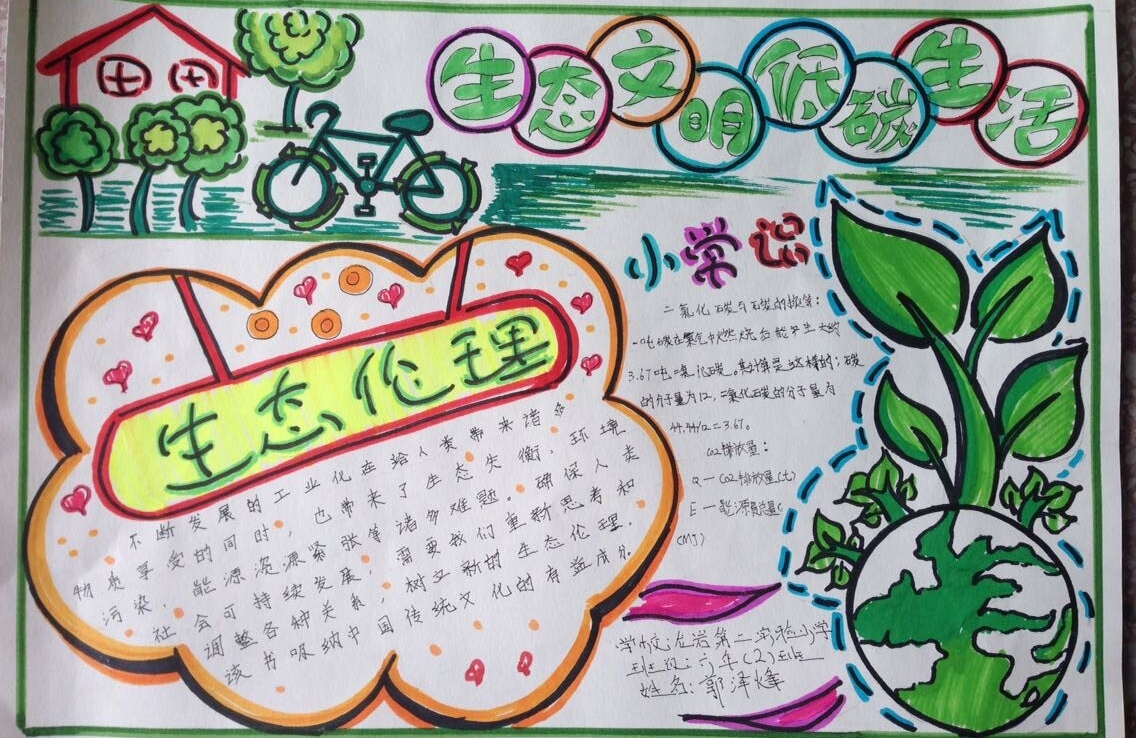 生态文明低碳生活
生态伦理
不断发展的工业化在给人类带来诸多
物质享受的同时，也带来了生态失衡，环境
污染，能源资源紧张等诸多难题。确保人类
社会可持续发展，需要我们重新思考和
调整各种关系，树立新的生态伦理，
该书吸纳中国传统文化的有益成分
小常识
二氧化碳与石炭的换算：
一吨碳在氧气中燃烧后能产生大约
3.67吨二氧化碳。其计算是这样的：碳
的分子量为12，二氧化碳的分子量为
44，44/12=3.67。
CO2排放量：
Q一CO2排放量(t)
E一能源总量(
(MJ)
学校：龙岩第二实验小学
班级：六年(2)班
姓名：郭泽烽